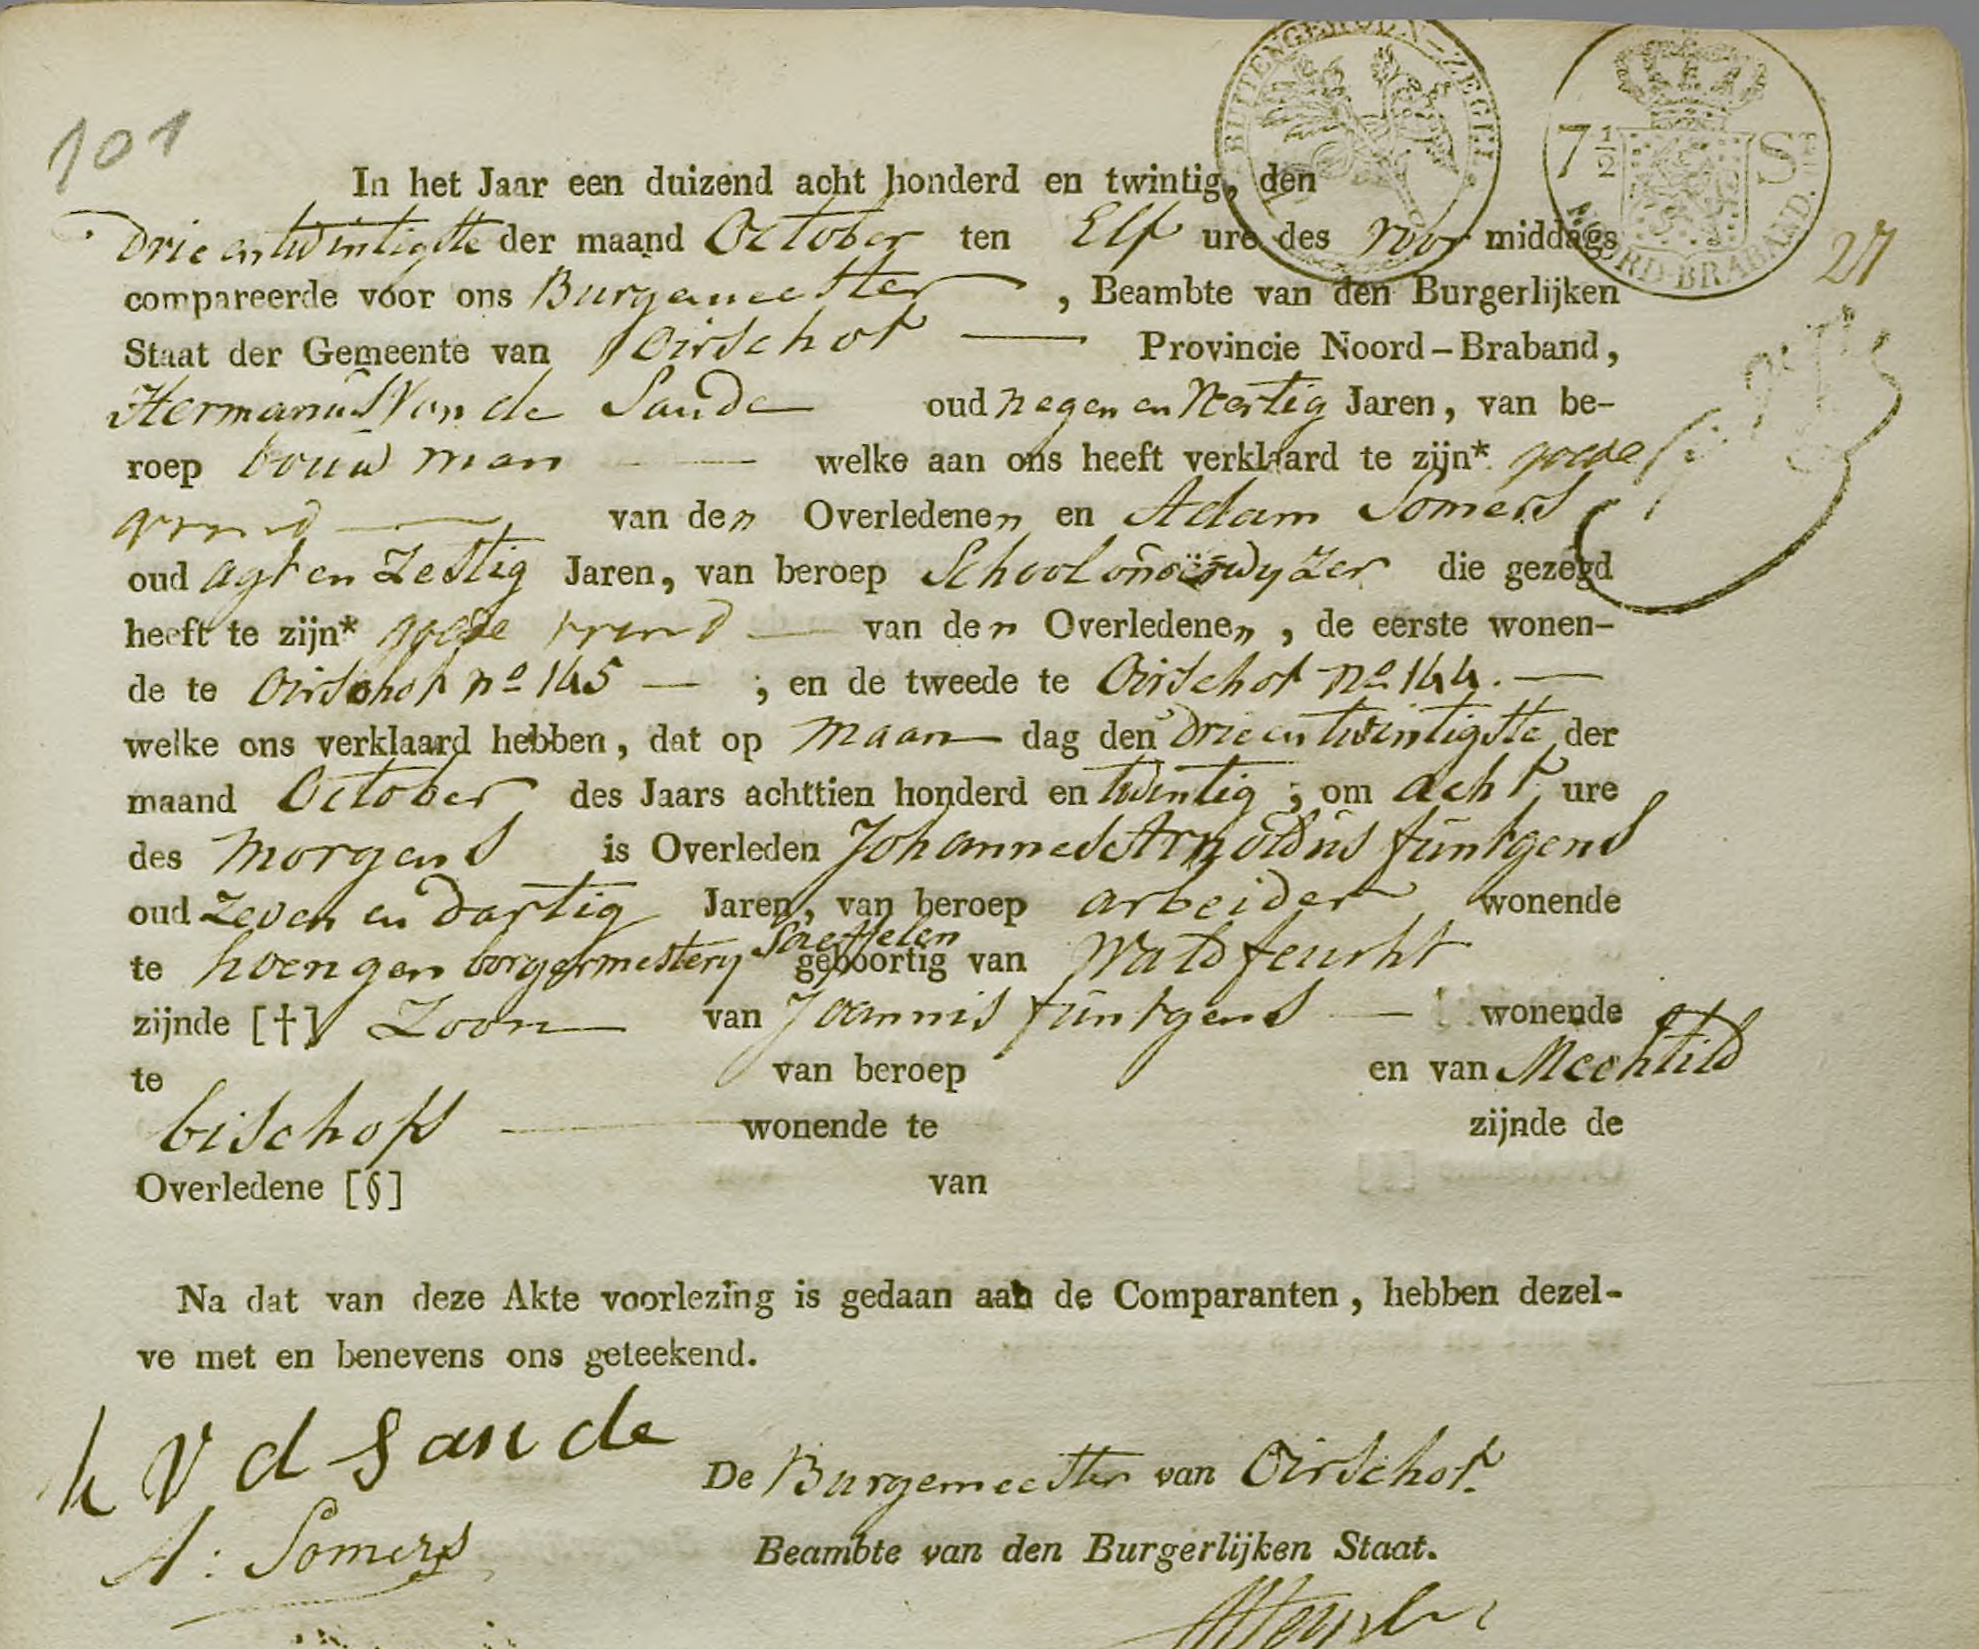 BUITENGEWOON-ZEGEL.
7½ St
NOORD-BRABAND.
101
In het Jaar een duizend acht honderd en twintig, den
drie en twintigste der maand October ten Elf ure des voor middags
27
compareerde voor ons Burgemeester, Beambte van den Burgerlijken
Staat der Gemeente van Oirschot — Provincie Noord-Braband,
Hermanus Van de Sande oud negen en Veertig Jaren, van be-
roep bouwman — welke aan ons heeft verklaard te zijn* goede
vrind — van den Overledenen en Adam Somers
oud agt en Zestig Jaren, van beroep Schoolonderwyzer die gezegd
heeft te zijn* goede vrind — van den Overledenen, de eerste wonen-
de te Oirschot no 145 — ; en de tweede te Oirschot no 144. —
welke ons verklaard hebben, dat op maan dag den drie en twintigste der
maand October des Jaars achttien honderd en twintig ; om acht ure
des morgens is Overleden Johannes Arnoldus füntgens
oud Zeven en dartig Jaren, van beroep arbeider wonende
te hoengen borgermestery Saeffelen geboortig van Waldfeucht
zijnde [†] Zoon — van Joannis füntgens — wonende
te van beroep en van Mechtild
bischofs — wonende te zijnde de
Overledene [§] van
Na dat van deze Akte voorlezing is gedaan aan de Comparanten, hebben dezel-
ve met en benevens ons geteekend.
h v d sande
De Burgemeester van Oirschot.
A: Somers
Beambte van den Burgerlijken Staat.